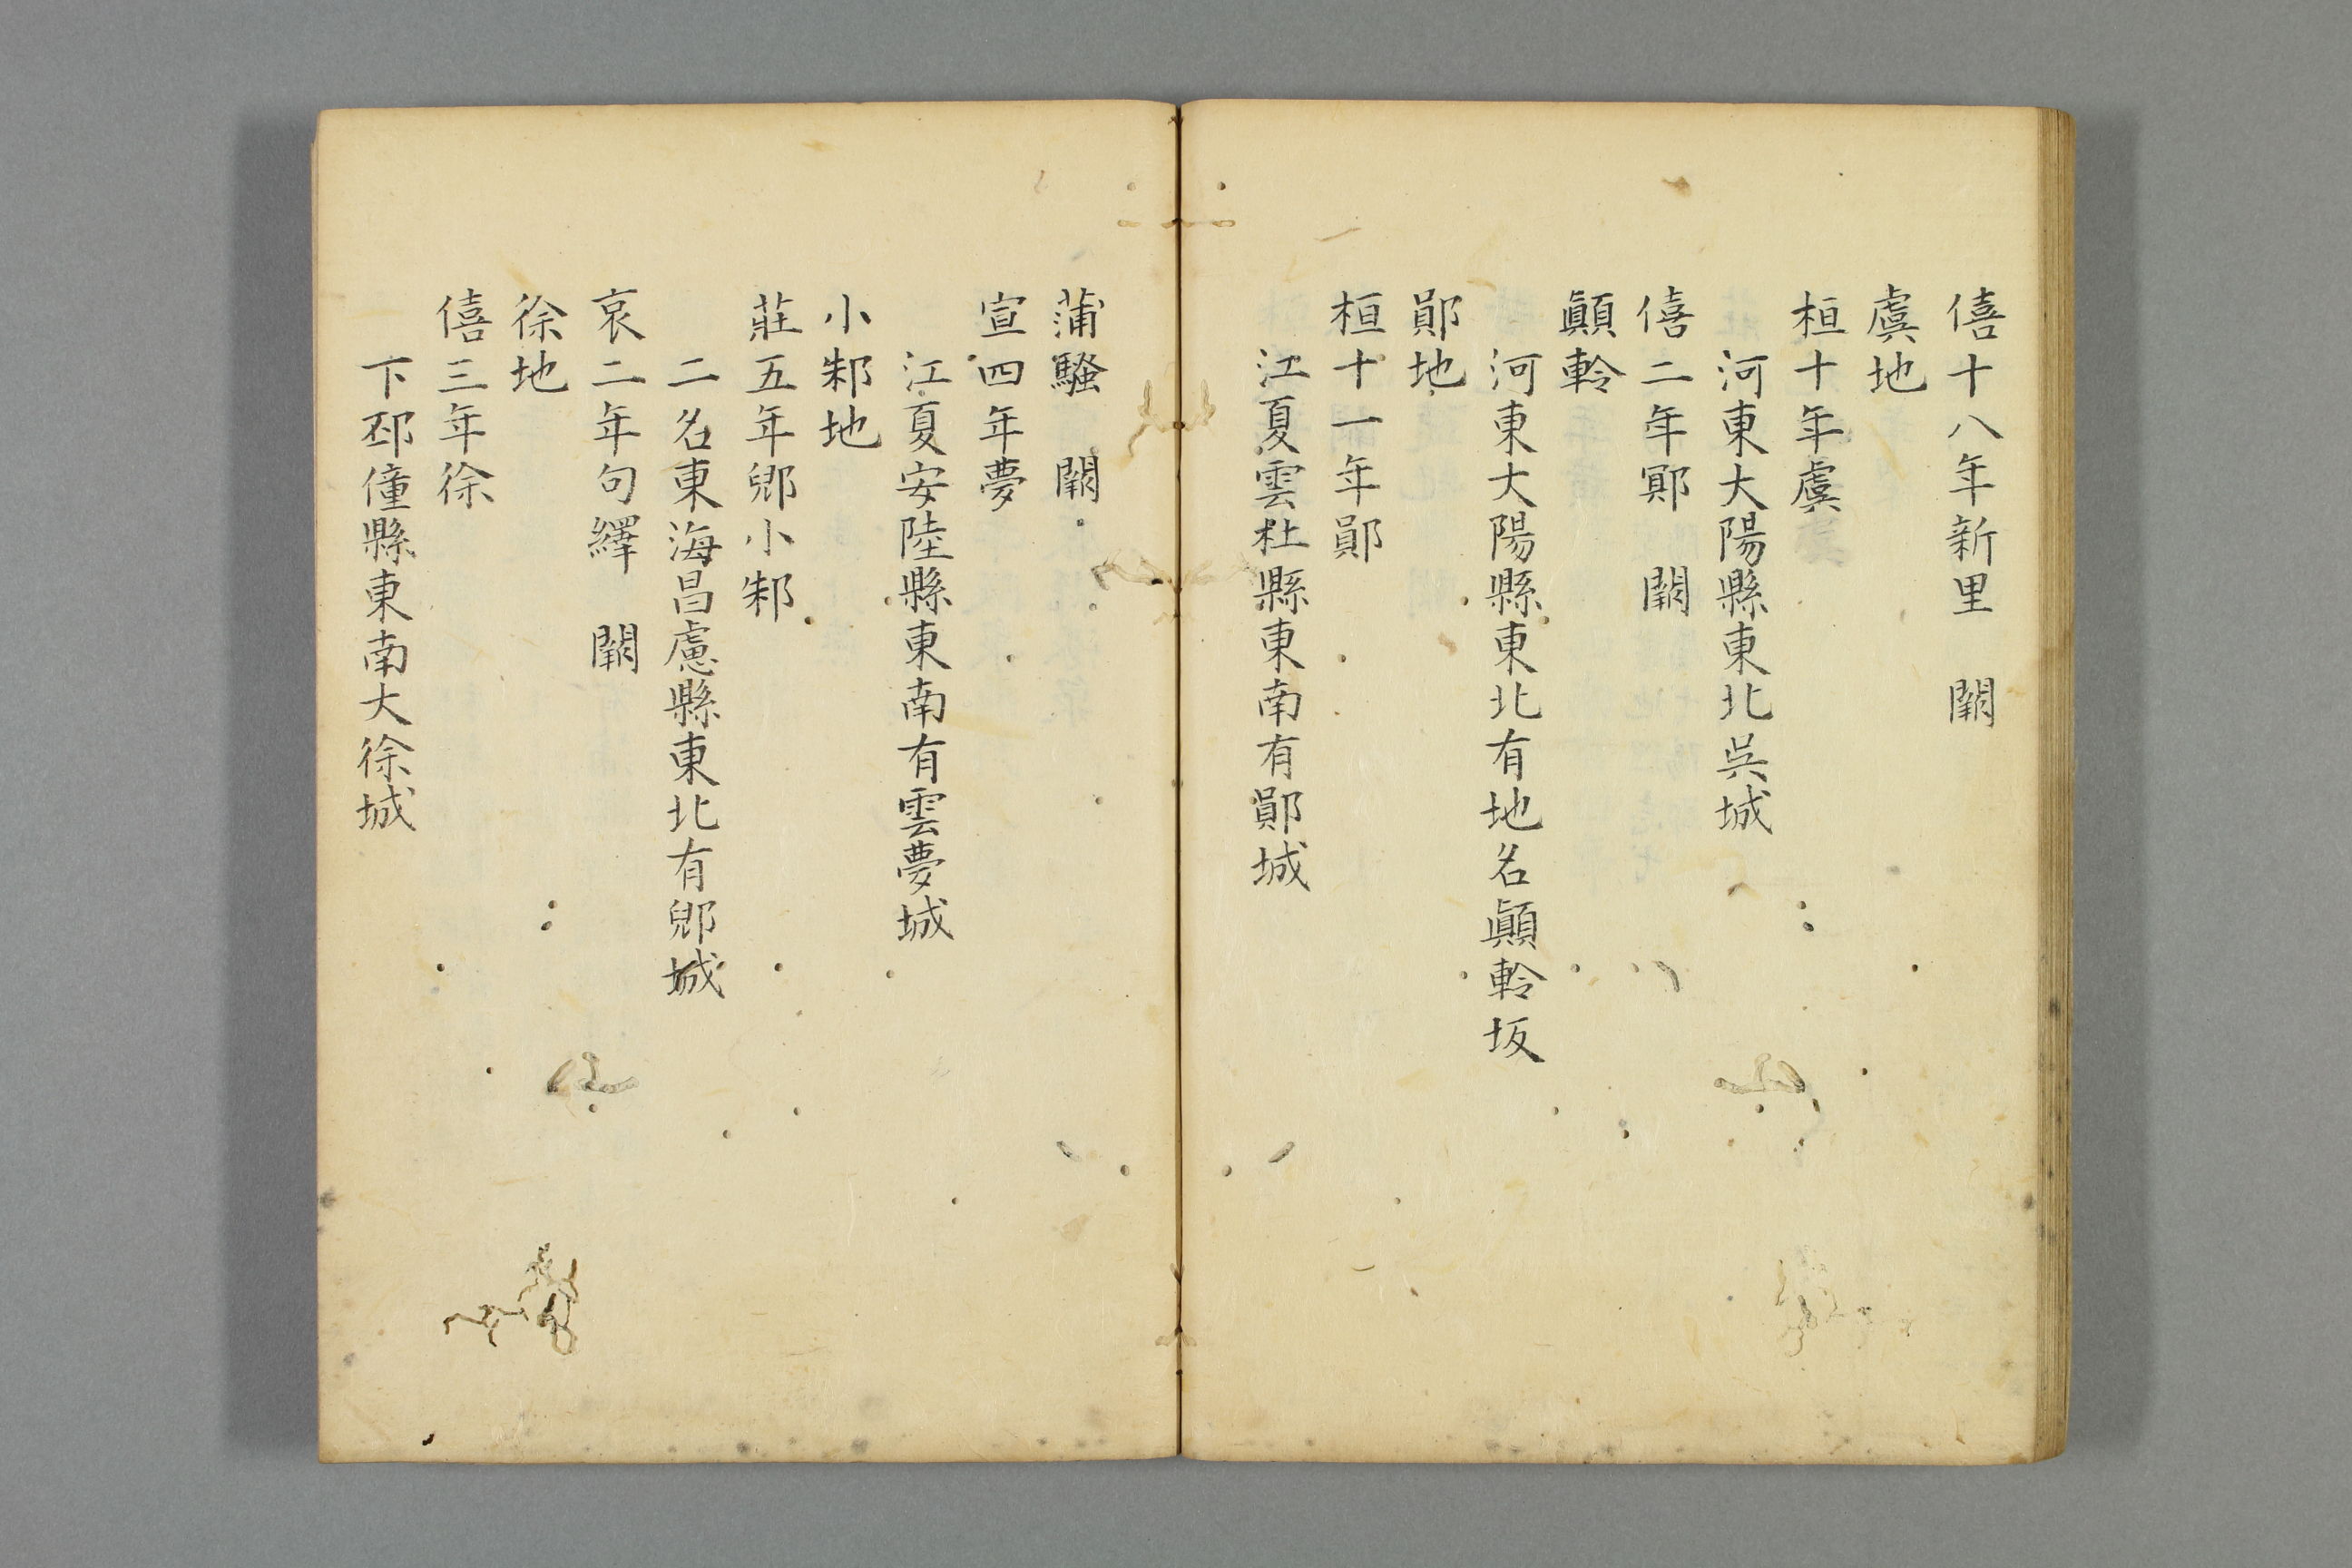 僖十八年新里　闕
虞地
桓十年虞
河東大陽縣東北吳城
僖二年鄍　闕
顚軨
河東大陽縣東北有地名顚軨坂
鄖地
桓十一年鄖
江夏雲杜縣東南有鄖城
蒲騷　闕
宣四年夢
江夏安陸縣東南有雲夢城
小邾地
莊五年郷小邾
二名東海昌慮縣東北有郷城
哀二年句繹　闕
徐地
僖三年徐
下邳僮縣東南大徐城